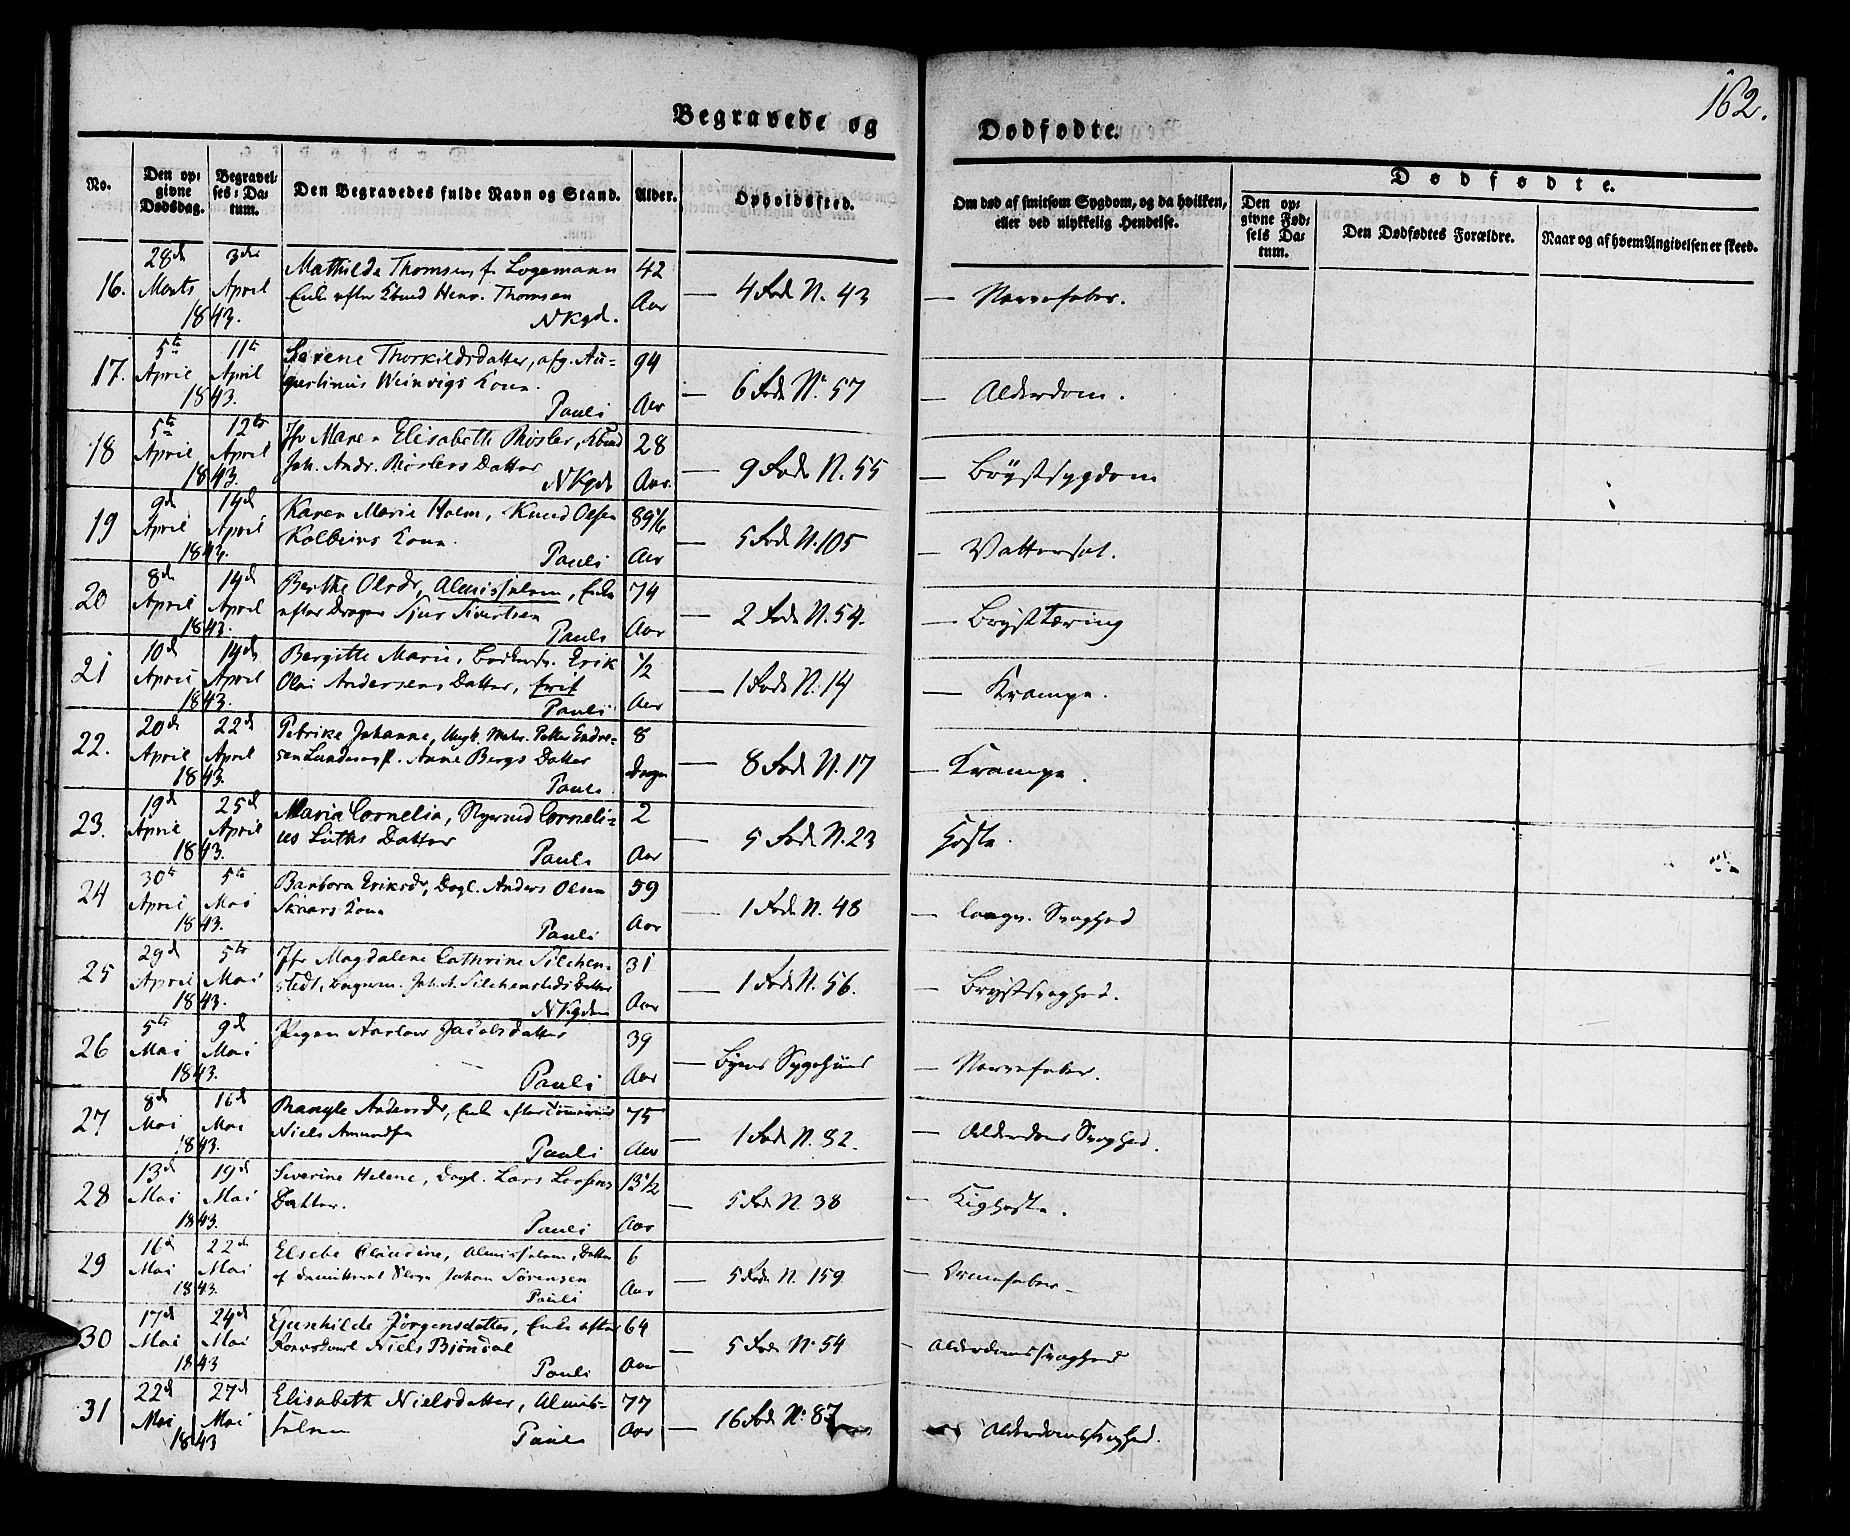 162.
Begravede og Dødfødte.
No.
Den opgivne Dødsdag.
Begravelses-Datum.
Den Begravedes fulde Navn og Stand.
Alder.
Opholdssted.
Om død af smitsom Sygdom, og da hvilken, eller ved ulykkelig Hendelse.
Dødfødte.
Den opgivne Fødsels Datum.
Den Dødfødtes Forældre.
Naar og af hvem Angivelsen er skeed.
16. 28de Marts 3die April 1843.
Mathilde Thomsen, f. Logemann
Enke efter Henr. Thomsen
NKgd.
42 Aar
4 Rode N. 43
Nervefeber.
17. 5te April 11te April 1843.
Thorkildsdatter, afg. Au-
gustinus Weinvigs Kone.
Pauli
94 Aar
6 Rode N. 57
Alderdom.
18 5te April 12te April 1843.
Jfr Maren Elisabeth Røsler,
Joh. Andr. Røslers Datter
NKgd
28 Aar.
9 Rode N. 55
Brystsygdom
19 9de April 19de April 1843.
Karen Marie Holm, Knud Olsen
Kone.
Pauli
89 Aar
5 Rode N. 105
Vattersot.
20 8de April 14de April 1843.
Berthe Olsdr, Almisselem, Enke
efter Drager Sjur Sivertsen
Pauli
74 Aar
2 Rode N. 54.
Brysttæring
21 10de April 14de April 1843.
Bergitte Marie, Erik
Olai Andersens Datter,
Pauli
1/2 Aar
1 Rode N. 14
Krampe.
22. 20de April 22de April 1843.
Petrike Johanne, Ungk. Petter Endre-
sen Anne Bergs Datter
Pauli
8 Dage
8 Rode N. 17
Krampe.
23. 19de April 25de April 1843.
Maria Cornelia, Corneli-
us Lüths Datter
Pauli
2 Aar
5 Rode N. 23
Hoste.
24 30te April 5te Mai 1843.
Barbora Eriksdr, Dagl. Anders Olsen
Kone
Pauli
59 Aar
1 Rode N. 48
langv. Svaghed
25 29de April 5te Mai 1843.
Jfr Magdalene Cathrine Silchen-
stedt, Joh. A. Silchenstedts Datter
NKgden
31 Aar
1 Rode N. 56.
Brystsvaghed.
26 5te Mai 9de Mai 1843.
Pigen Jacobsdatter
Pauli
39 Aar
Byens Sygehuus
Nervefeber.
27 8de Mai 16de Mai 1843.
Andersdr, Enke efter
Niels Amundsen
Pauli
75 Aar
1 Rode N. 32.
Alderdoms Svaghed.
28 13de Mai 19de Mai 1843.
Severine Helene, Dagl. Lars Larsens
Datter.
Pauli
13 1/2 Aar
5 Rode N. 38
Kighoste.
29 16de Mai 22de Mai 1843.
Elsebe Claudine, Almisselem, Datter
af Johan Sørensen
Pauli
6 Aar
5 Rode N. 159
30 17de Mai 24de Mai 1843
Gunhilde Jørgensdatter, Enke efter
Niels Bjöndal
Pauli
64 Aar
5 Rode N. 54
Alderdomssvaghed
31 22de Mai 27de Mai 1843
Elisabeth Nielsdatter, Almis-
selem
Pauli
77 Aar
16 Rode N. 87
Alderdomssvaghed.